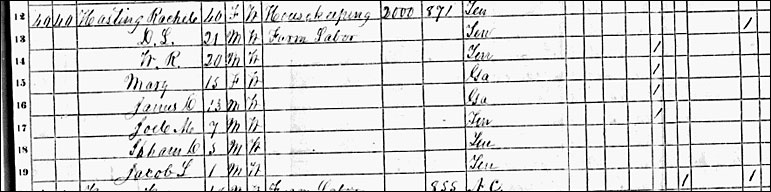 12 49 49 Hasling Rachele 40 F W Housekeeping 2000 871 Ten
13 D. L. 21 M W Farm Labor Ten
14 W. R. 20 M W Ten 1
15 Mary 15 F W Ga 1
16 James D 13 M W Ga 1
17 Joel M 7 M W Ten 1
18 D 5 M W Ten
19 Jacob L 1 M W Ten
Farm Labor 855 N.C. 1 1